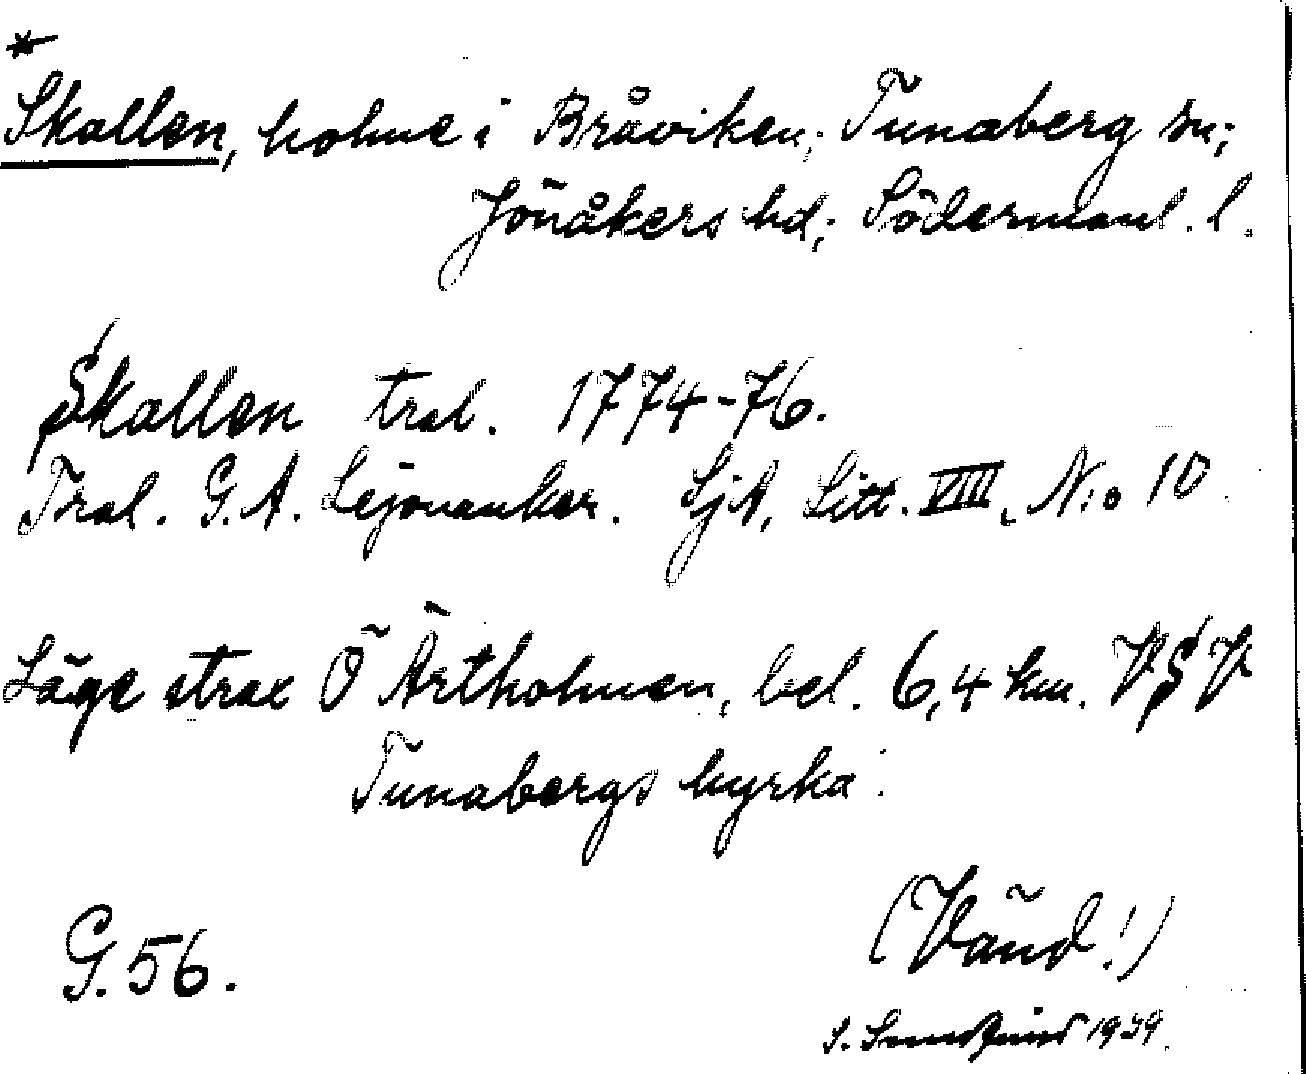 *
Skallen, holme i Bråviken; Tunaberg sn;
Jönåkers hd; Södermanl. l.
Skallen tral. 1774-76.
Tral. G. A. Lejonanker. SjA, Litt. VIII, N:o 10.
Läge strax Ö Ärtholmen, bel. 6,4 km. VSV
Tunabergs kyrka.
G. 56.
(Vänd!)
S. 1939.